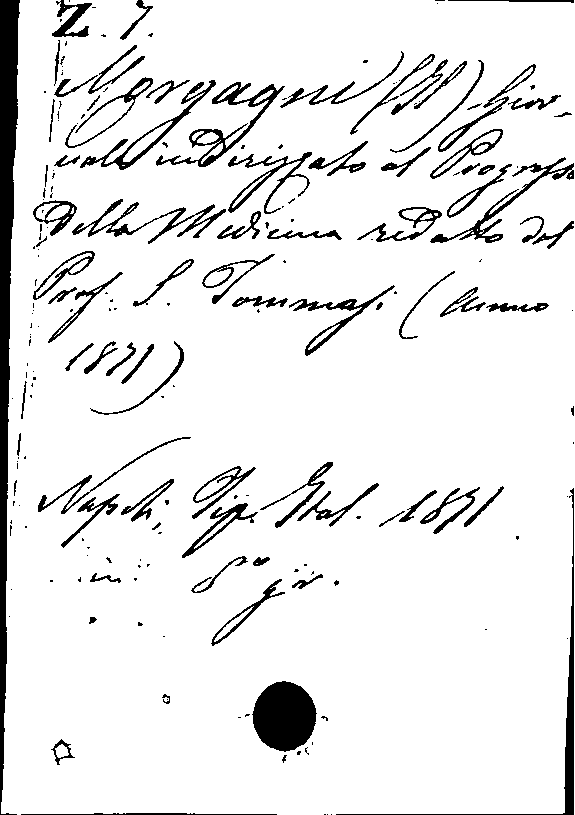 Z. 7.
Morgagni (Il) Gior-
nale indirizzato al Progresso
della Medicina redatto dal
Prof. S. Tommasi (Anno
1871)
Napoli, Tip. Ital. 1871
in 8º gr.